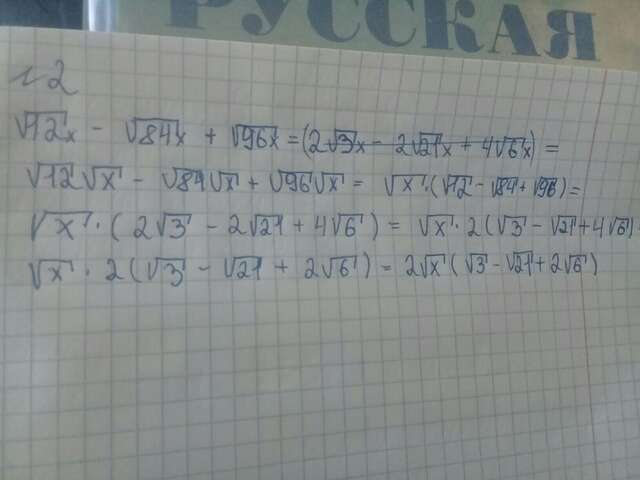 РУССКАЯ
№2
√12x - √84x + √96x = (2√3x - 2√21x + 4√6x) =
√12√x - √84√x + √96√x = √x·(√12 - √84 + √96) =
√x·(2√3 - 2√21 + 4√6) = √x·2(√3 - √21 + 4√6)
√x·2(√3 - √21 + 2√6) = 2√x(√3 - √21 + 2√6)